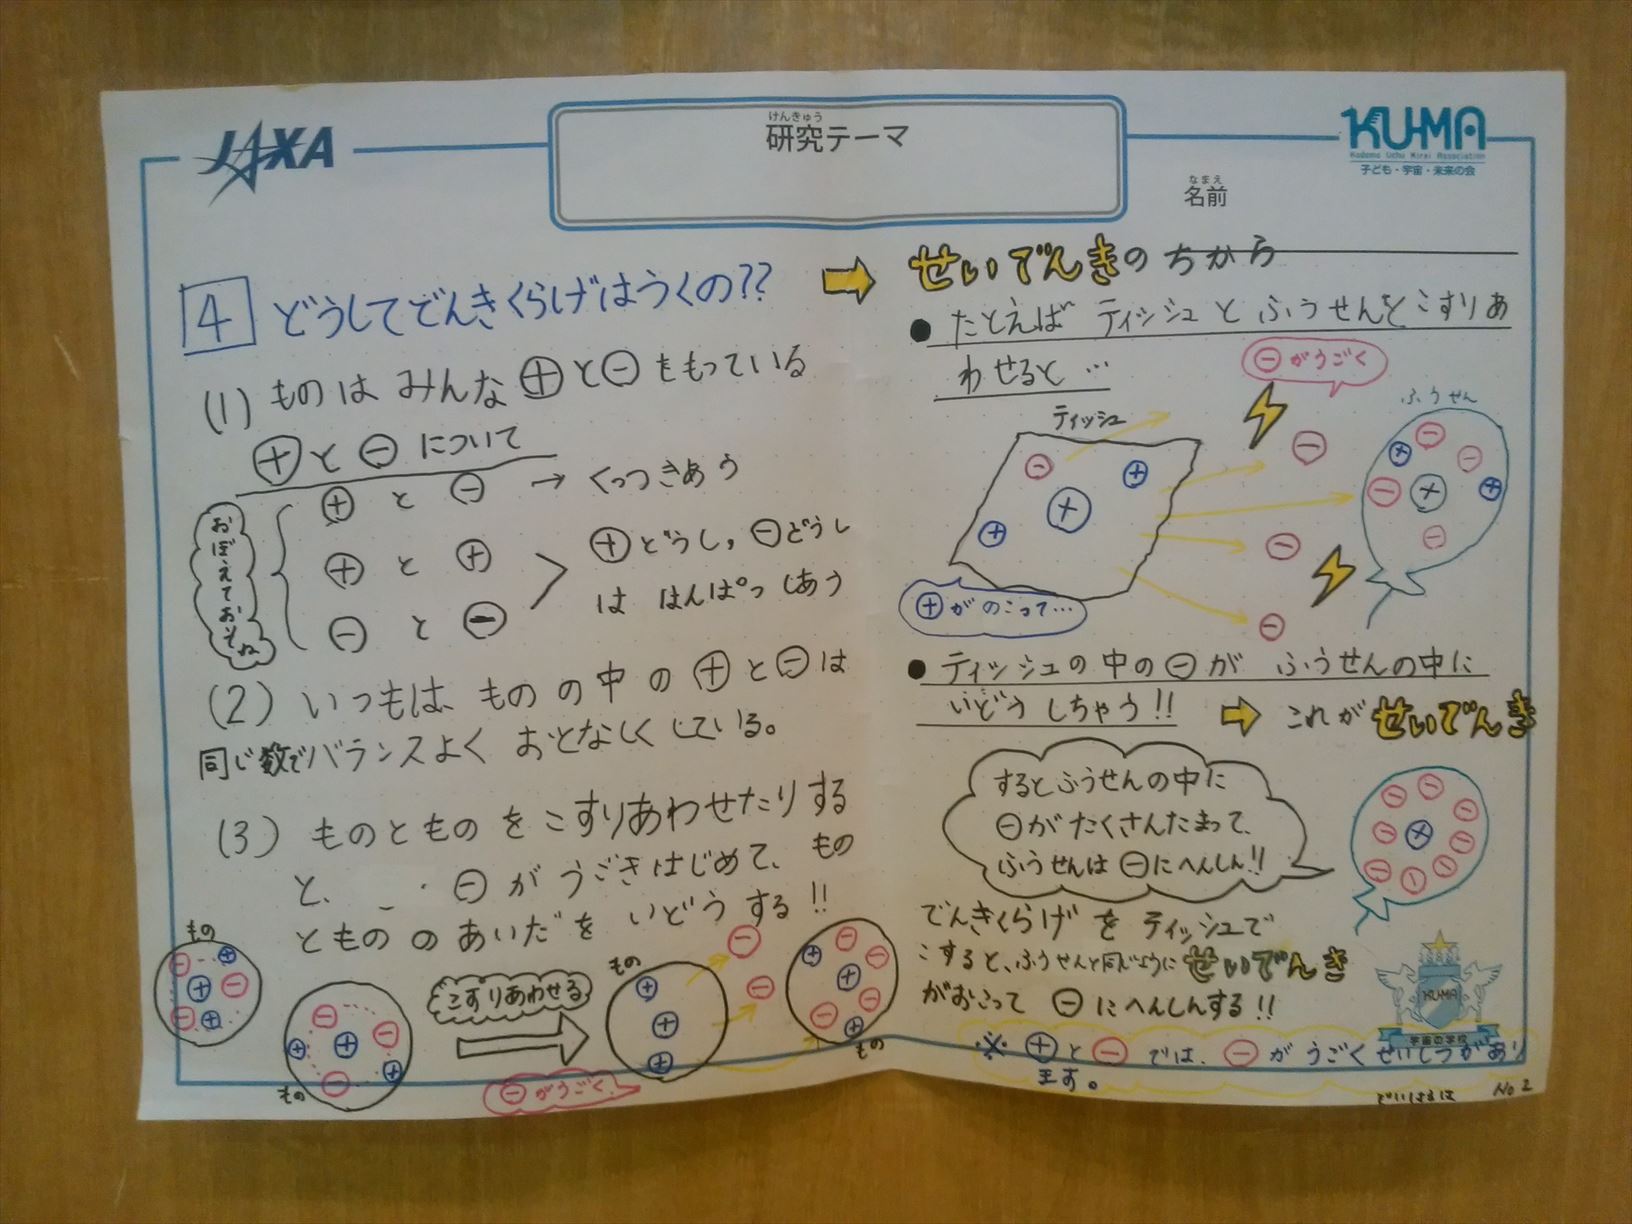 JAXA
けんきゅう
研究テーマ
KU-MA
Kodomo Uchu Mirai Association
子ども・宇宙・未来の会
なまえ
名前
4 どうしてでんきくらげはうくの??
(1) ものは みんな ⊕と⊖をもっている
⊕と⊖について
おぼえておいてね
⊕ と ⊖ → くっつきあう
⊕ と ⊕
⊖ と ⊖
⊕どうし,⊖どうし
は はんぱつしあう
(2) いつもは、ものの中の⊕と⊖は
同じ数でバランスよく おとなしくしている。
(3) ものとものをこすりあわせたりする
と、⊖がうごきはじめて、もの
とものの あいだを いどうする!!
もの
⊖ ⊕ ⊕ ⊖ ⊖ ⊕
もの
⊖ ⊕ ⊕ ⊖ ⊕ ⊖
こすりあわせる
⊖がうごく!
もの
⊕ ⊕ ⊕
⊖ ⊖
⊖ ⊕ ⊖ ⊕ ⊖ ⊖ ⊕
もの
➡ せいでんきのちから
● たとえば ティッシュと ふうせんをこすりあ
わせると…
⊖がうごく
ティッシュ
⊖ ⊕ ⊕ ⊕
⊕がのこって…
⊖ ⊖ ⊖
ふうせん
⊖ ⊕ ⊖ ⊖ ⊕ ⊕ ⊖
● ティッシュの中の⊖が ふうせんの中に
いどうしちゃう!! ➡ これがせいでんき
するとふうせんの中に
⊖がたくさんたまって、
ふうせんは⊖にへんしん!!
⊖ ⊖ ⊖ ⊖ ⊕ ⊖ ⊖ ⊖ ⊖
でんきくらげを ティッシュで
こすると、ふうせんと同じようにせいでんき
がおこって ⊖にへんしんする!!
KUMA
宇宙の学校
※ ⊕と⊖では、⊖がうごくせいしつがあり
ます。
No 2